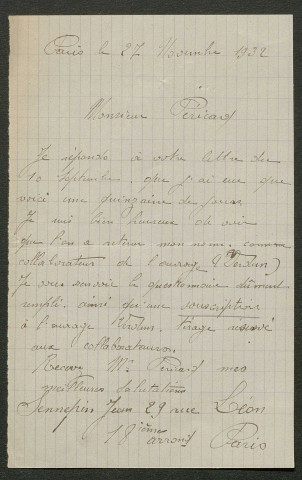 Paris le 27 Novembre 1932
Monsieur Péricard
Je réponds à votre lettre du
10 Septembre. que j'ai eue que
voici une quinzaine de jours
Je suis bien heureux de voir
que l'on a retenu mon nom. comme
collaborateur de l'ouvrage (Verdun)
Je vous renvoie le questionnaire dûment
rempli. ainsi qu'une souscription
à l'ouvrage Verdun. tirage réservé
aux collaborateurs.
Recevez Mr Péricard mes
meilleures salutations
Jean 29 rue Léon
18 ième arront Paris